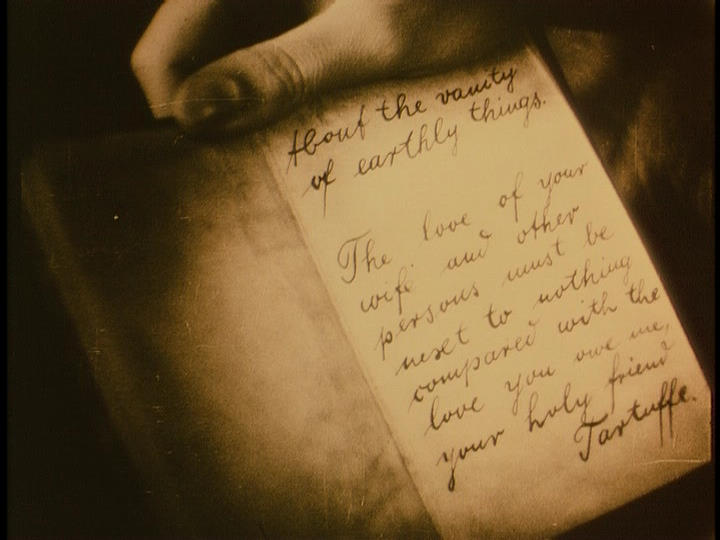 About the vanity
of earthly things.
The love of your
wife and other
persons must be
next to nothing
compared with the
love you owe me,
your holy friend
Tartuffe.